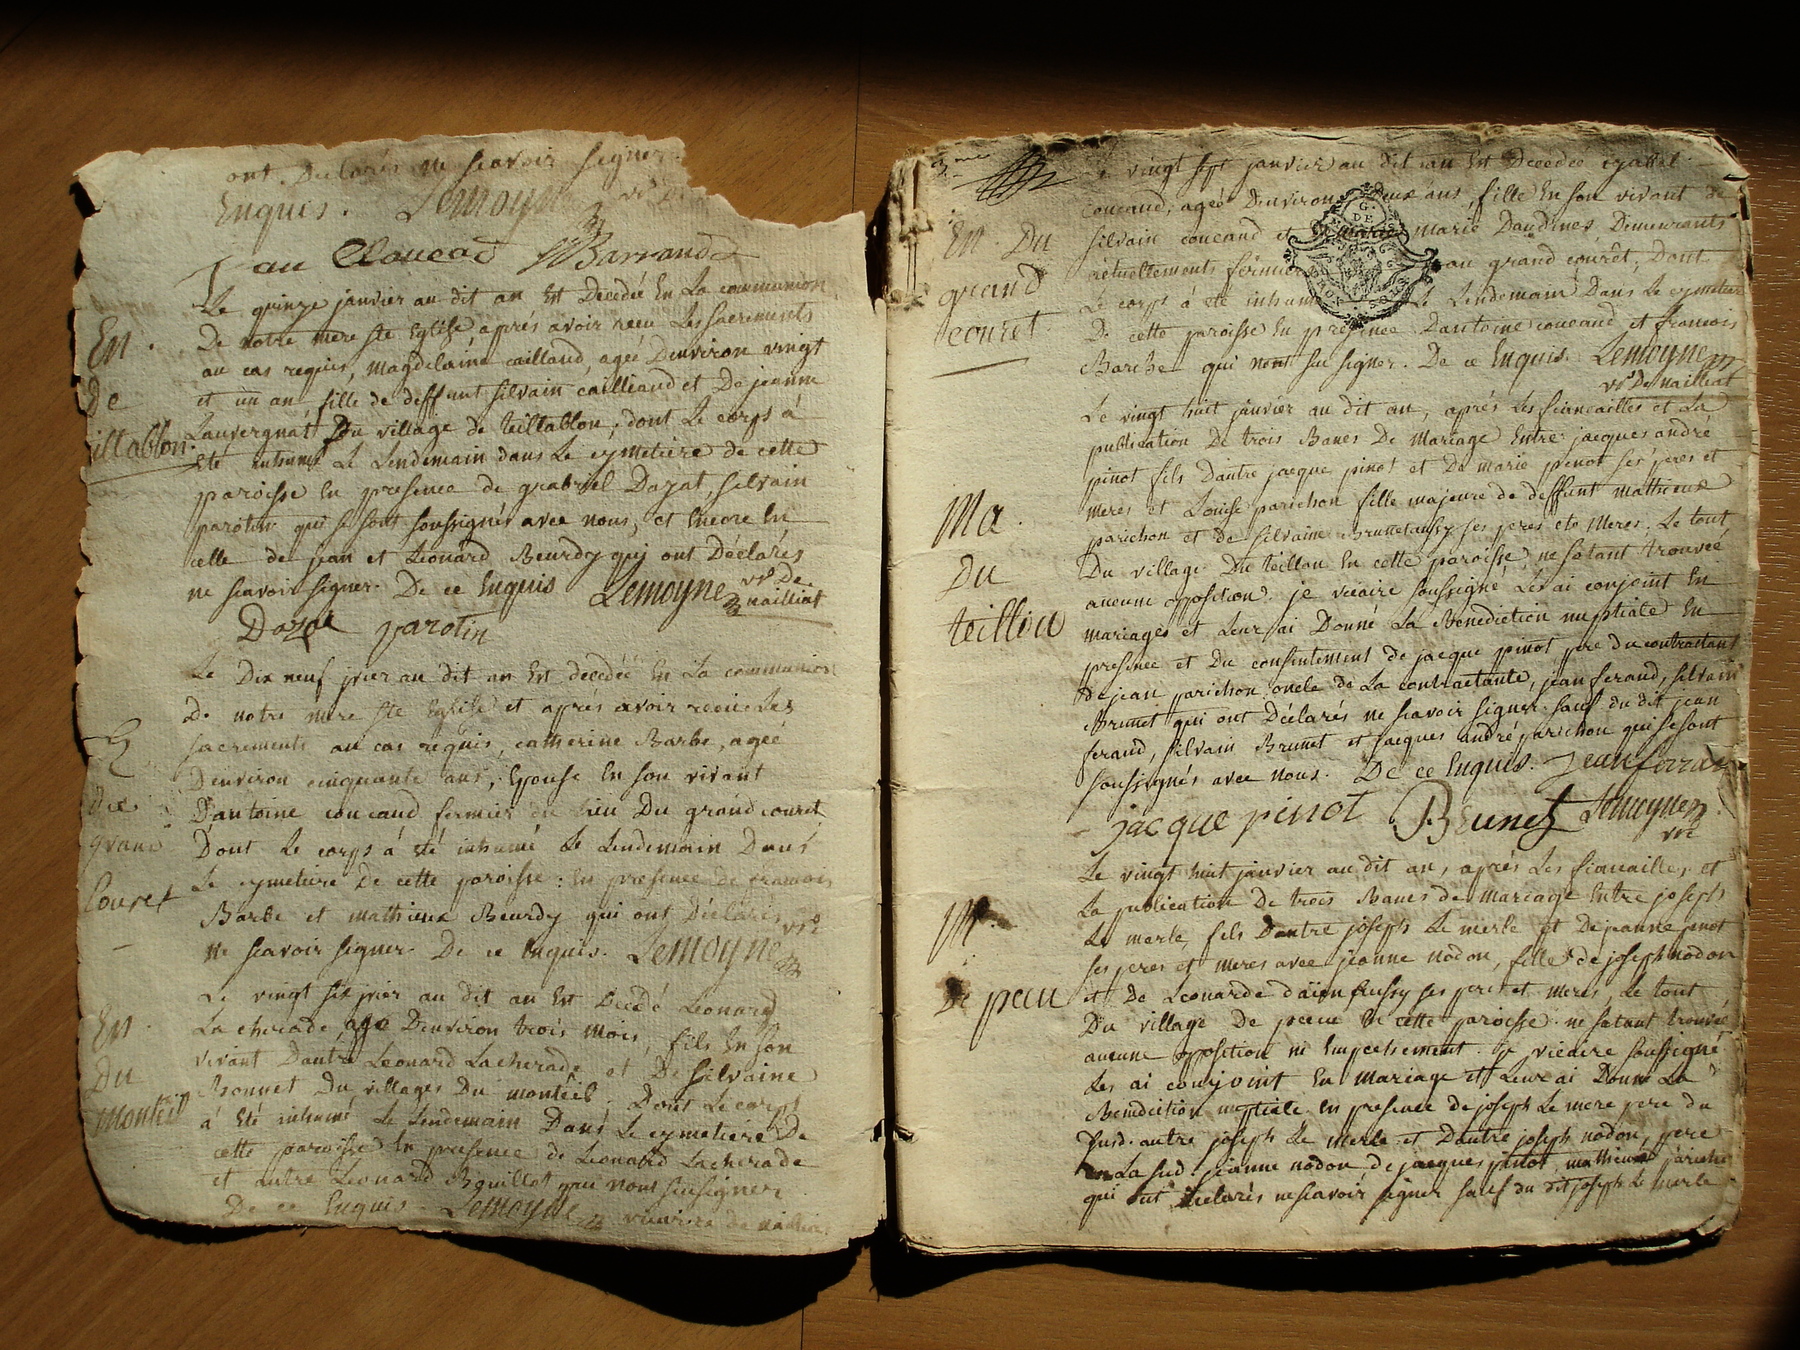 ont Déclarés ne scavoir signer
Enquis. Lemoyne
jau Coucaud Barrande
Le quinze janvier au dit an Est Decedée En La communion
De notre mere ste Eglise aprés avoir recu Les sacrements
au cas requis, magdelaine caillaud, ageé Denviron vingt
et un an fille de deffunt silvain cailliaud et De jeanne
Lauvergnat Du village de teillablon, dont Le corps á
Eté inhumé Le Lendemain dans Le cymetiere de cette
paroisse En presence de gabriel Dazat, silvain
parotin qui se sont soussignés avec nous, et Encore En
celle de jean et Leonard Beurdy qui ont Déclarés
ne scavoir signer. De ce Enquis Lemoyne vre De
nailliat
Dazat parotin
Le Dix neuf jvier au dit an Est decedeé En La communion
De notre mere ste Eglise et aprés avoir recue Les
sacrements au cas requis, catherine Barbe, ageé
Denviron cinquante ans, Epouse En son vivant
D'antoine coucaud fermier du Lieu Du grand couret
Dont Le corps á été inhumé Le Lendemain Dans
Le cymetiere De cette paroisse: En presence de francois
Barbe et mathieux Beurdy qui ont Déclarés
ne scavoir signer De ce Enquis. Lemoyne vre
Le vingt six jvier au dit an Est Decedé Leonard
Lacherade agé Denviron trois mois, fils En son
vivant Dautre Leonard Lacherade et De silvaine
Bonnet Du villages Du monteil. Dont Le corps
á Eté inhumé Le Lendemain Dans Le cymetiere De
cette paroisse En presence de Leonard Lacherade
et autre Leonard Bouillot qui nont su signer
De ce Enquis. Lemoyne vicaire de nailliat
En.
De
illablon.
E
du
grand
Couret
En.
Du
monteil
3.me
Le vingt sept janvier au dit an Est Decedeé
coucaud, ageé Denviron deux ans, fille En son vivant de
silvain coucaud et marie Daudines Demeurants
actuellements fermier au grand courêt, Dont
Le corps á été inhumé Le Lendemain Dans Le cymetiere
De cette paroisse En presence Dantoine coucaud et francois
Barbe qui nont su signer. De ce Enquis. Lemoyne
vre De nailliat
Le vingt huit janvier au dit an, aprés Les fiancailles et La
publication De trois Bancs De Mariage Entre jacques andré
pinot fils Dautre jacque pinot et De marie pinot ses peres et
meres et Louise parichon fille majeure de deffunt mathieux
parichon et de silvaine Brunetaussy ses peres et Meres. Le tout
Du village Du teillou En cette paroisse, ne sétant trouveé
aucune opposition. je vicaire soussigné Les ai conjoint En
mariages et Leur ai Donné La Bénédiction nuptiale En
presence et Du consentement de jacque pinot pere du contractant
De jean parichon oncle de La contractante, jean ferand, silvain
Brunet qui ont Déclarés ne scavoir signer sauf du dit jean
ferand, silvain Brunet et jacques andré parichon qui se sont
soussignés avec nous. De ce Enquis. jean ferran
jacque pinot Brunet Lemoyne
vre
Le vingt huit janvier au dit an, aprés Les fiancailles et
La publication De trois Bancs de mariage Entre joseph
Le merle, fils Dautre joseph Le merle et De jeanne pinot
ses peres et meres avec jeanne nodon, fille de joseph nodon
et De Leonarde ses peres et meres, Le tout
Du village De peeu En cette paroisse ne sétant trouveé
aucune opposition ni Empechement. je vicaire soussigné
Les ai conjoint En mariage et Leur ai Donné La
Benediction nuptiale En presence de joseph Le mere pere du
susd. autre joseph Le merle et Dautre joseph nodon, pere
La sud. jeanne nodon, de jacques pinot, mathieux
qui ont declarés ne scavoir signer sauf du dit joseph Le merle
En. Du
grand
couret
Ma.
Du
teillou
M.
De peeu
G.
DE